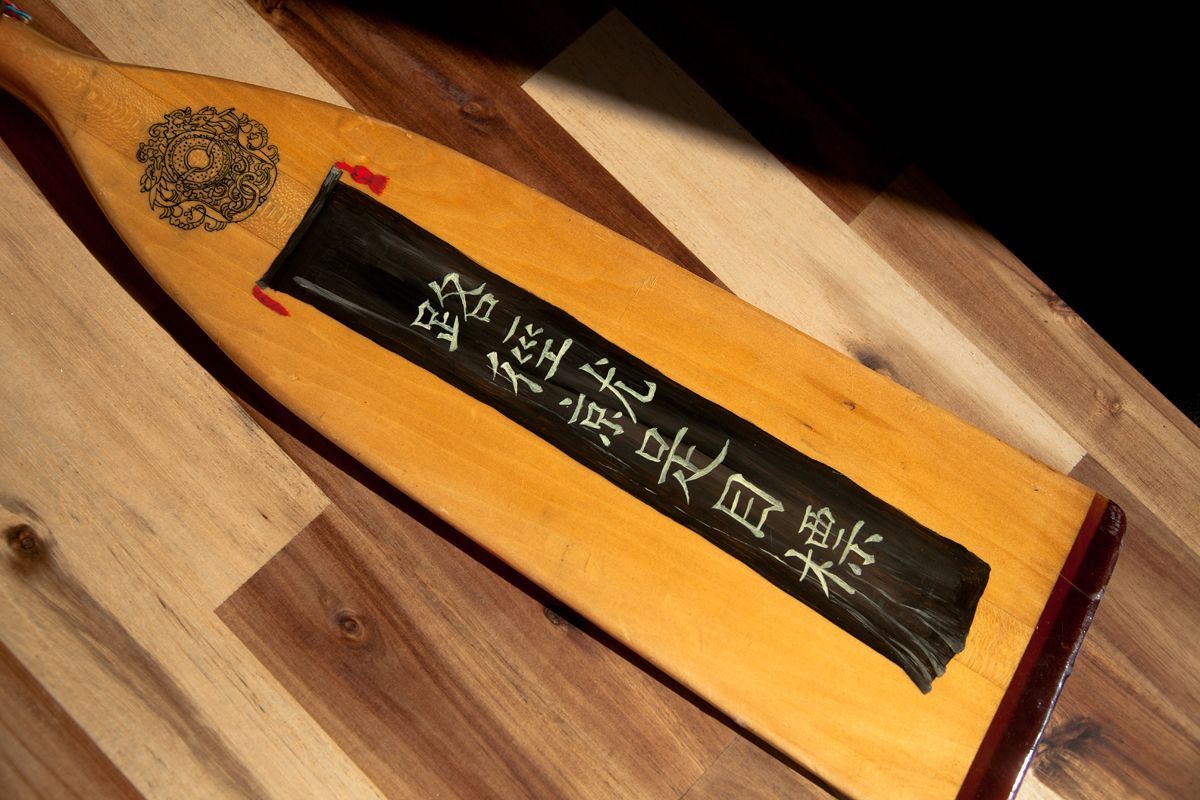 路徑就是目標